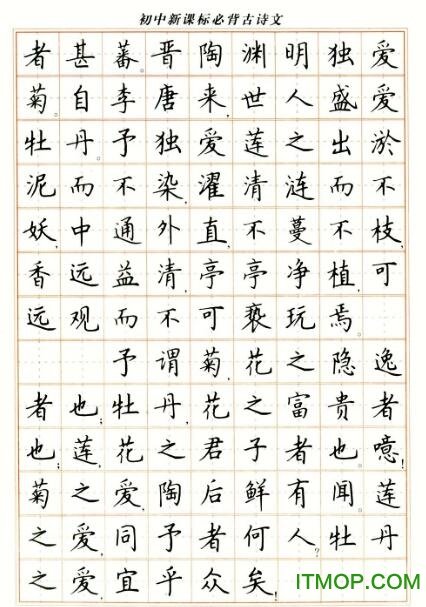 初中新课标必背古诗文
者甚蕃晋陶渊明独爱
菊。自李唐来,世人盛爱
牡丹。予独爱莲之出淤
泥而不染,濯清涟而不
妖,中通外直,不蔓不枝,
香远益清,亭亭净植,可
远观而不可亵玩焉。
予谓菊,花之隐逸
者也;牡丹,花之富贵者
也;莲,花之君子者也。噫!
菊之爱,陶后鲜有闻。莲
之爱,同予者何人?牡丹
之爱,宜乎众矣!
ITMOP.COM